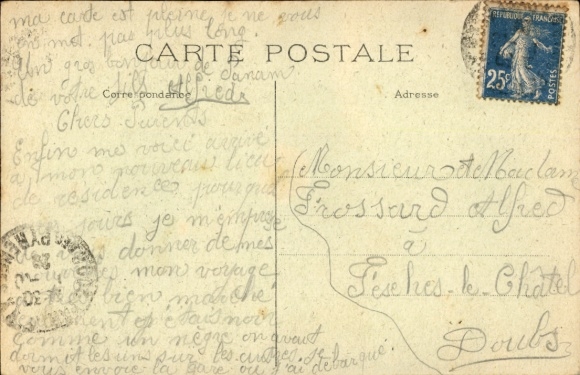 ma carte est pleine je ne vous
en met pas plus long.
Un gros bonjour de Panam
de votre fils Alfred
CARTE POSTALE
Correspondance
Adresse
RÉPUBLIQUE FRANÇAISE
25c
POSTES
Chers Parents
Enfin me voici arrivé
à mon nouveau lieu
de residence pour
jours je m'empresse
de vous donner de mes
mon voyage
très bien marché
étais noir
comme un nègre on avait
dormit les uns sur les autres. je
vous envoie la gare ou j'ai débarqué.
Monsieur et Madam
Frossard Alfred
à
Fesches-le-Châtel
Doubs